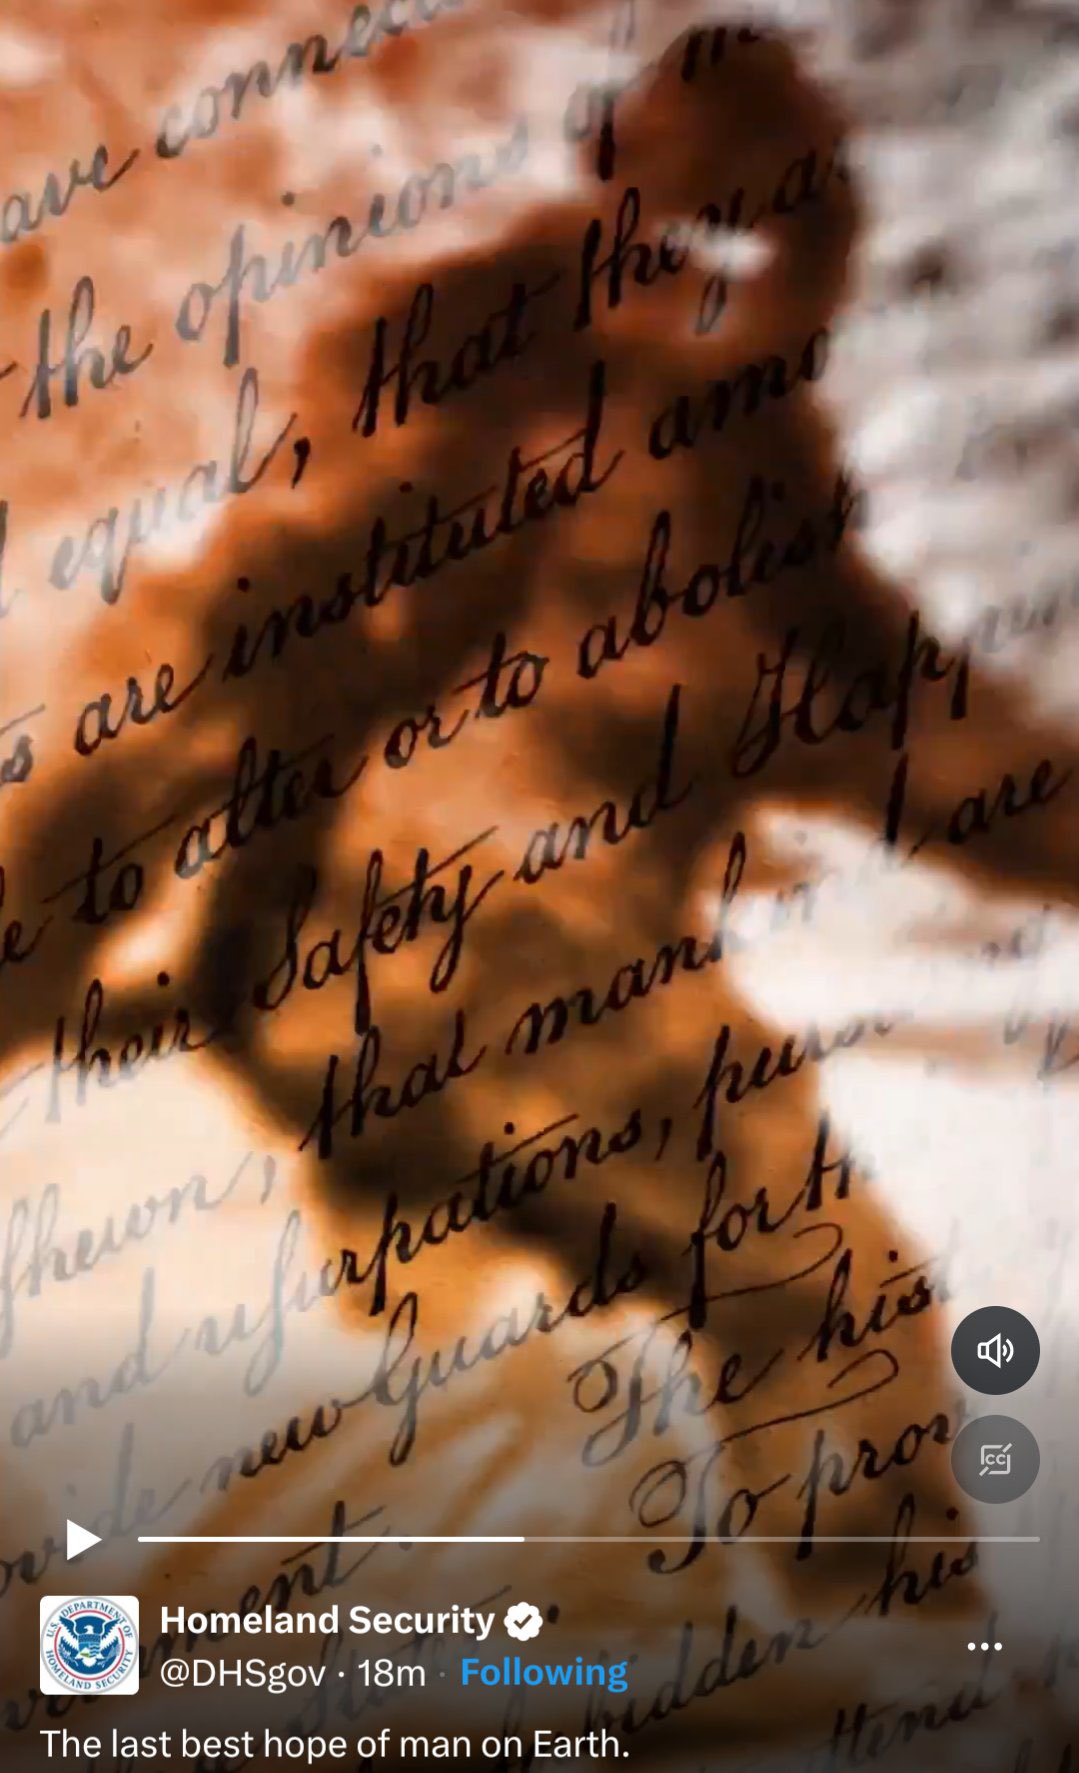 ave connec
the opinions of m
equal, that they a
s are instituted amo
e to alter or to abolish
their Safety and Happin
shewn, that mankind are
and usurpations, pursu
ovide new Guards for th
The his
To prov
ment.
his
bidden
attend
U.S. DEPARTMENT OF
HOMELAND SECURITY
CC
Homeland Security
@DHSgov · 18m · Following
The last best hope of man on Earth.